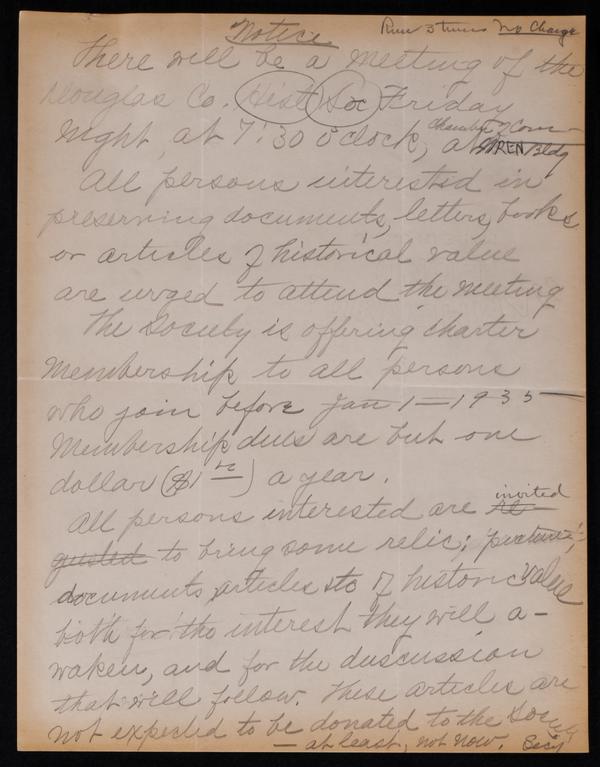 Notice Run 3 times No Charge
There will be a meeting of the
Douglas Co. Hist Soc Friday
Night at 7:30 o'clock, at Chamber of Com Bldg
All persons interested in
preserving documents, letters, books
or articles of historical value
are urged to attend the meeting
The Society is offering charter
membership to all persons
who join before Jan 1 - 1935
Membership dues are but one
dollar ($1 00) a year.
invited
All persons interested are re-
quested to bring some relic, picture,
documents, articles etc of historic value
both for the interest they will a-
waken, and for the duscussion
that will follow. These articles are
not expected to be donated to the Society
- at least, not now. Sec'y